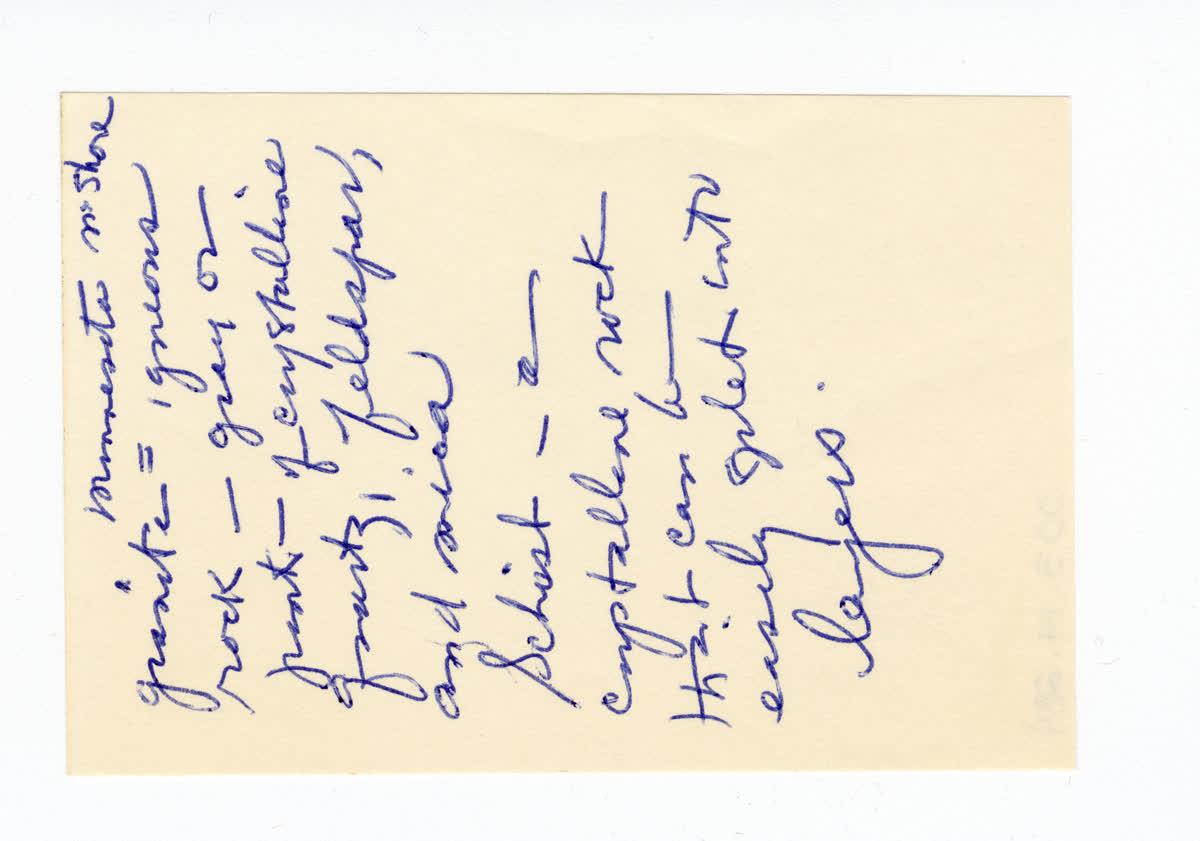 Minnesota N. Shore
granite = igneous
rock — gray or
pink — of crystalline
quartz, feldspar,
and mica
Schist — a
crystalline rock
that can be
easily split into
layers.